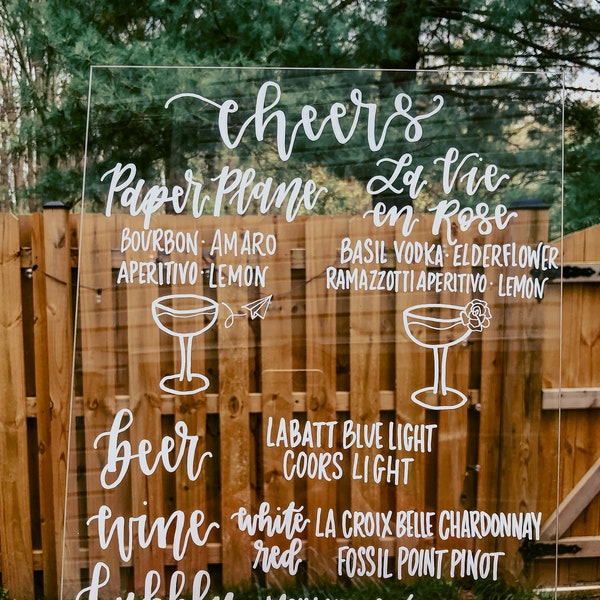 cheers
Paper Plane
BOURBON · AMARO
APERITIVO · LEMON
La Vie
en Rose
BASIL VODKA · ELDERFLOWER
RAMAZZOTTI APERITIVO · LEMON
beer
LABATT BLUE LIGHT
COORS LIGHT
wine
white LA CROIX BELLE CHARDONNAY
red FOSSIL POINT PINOT